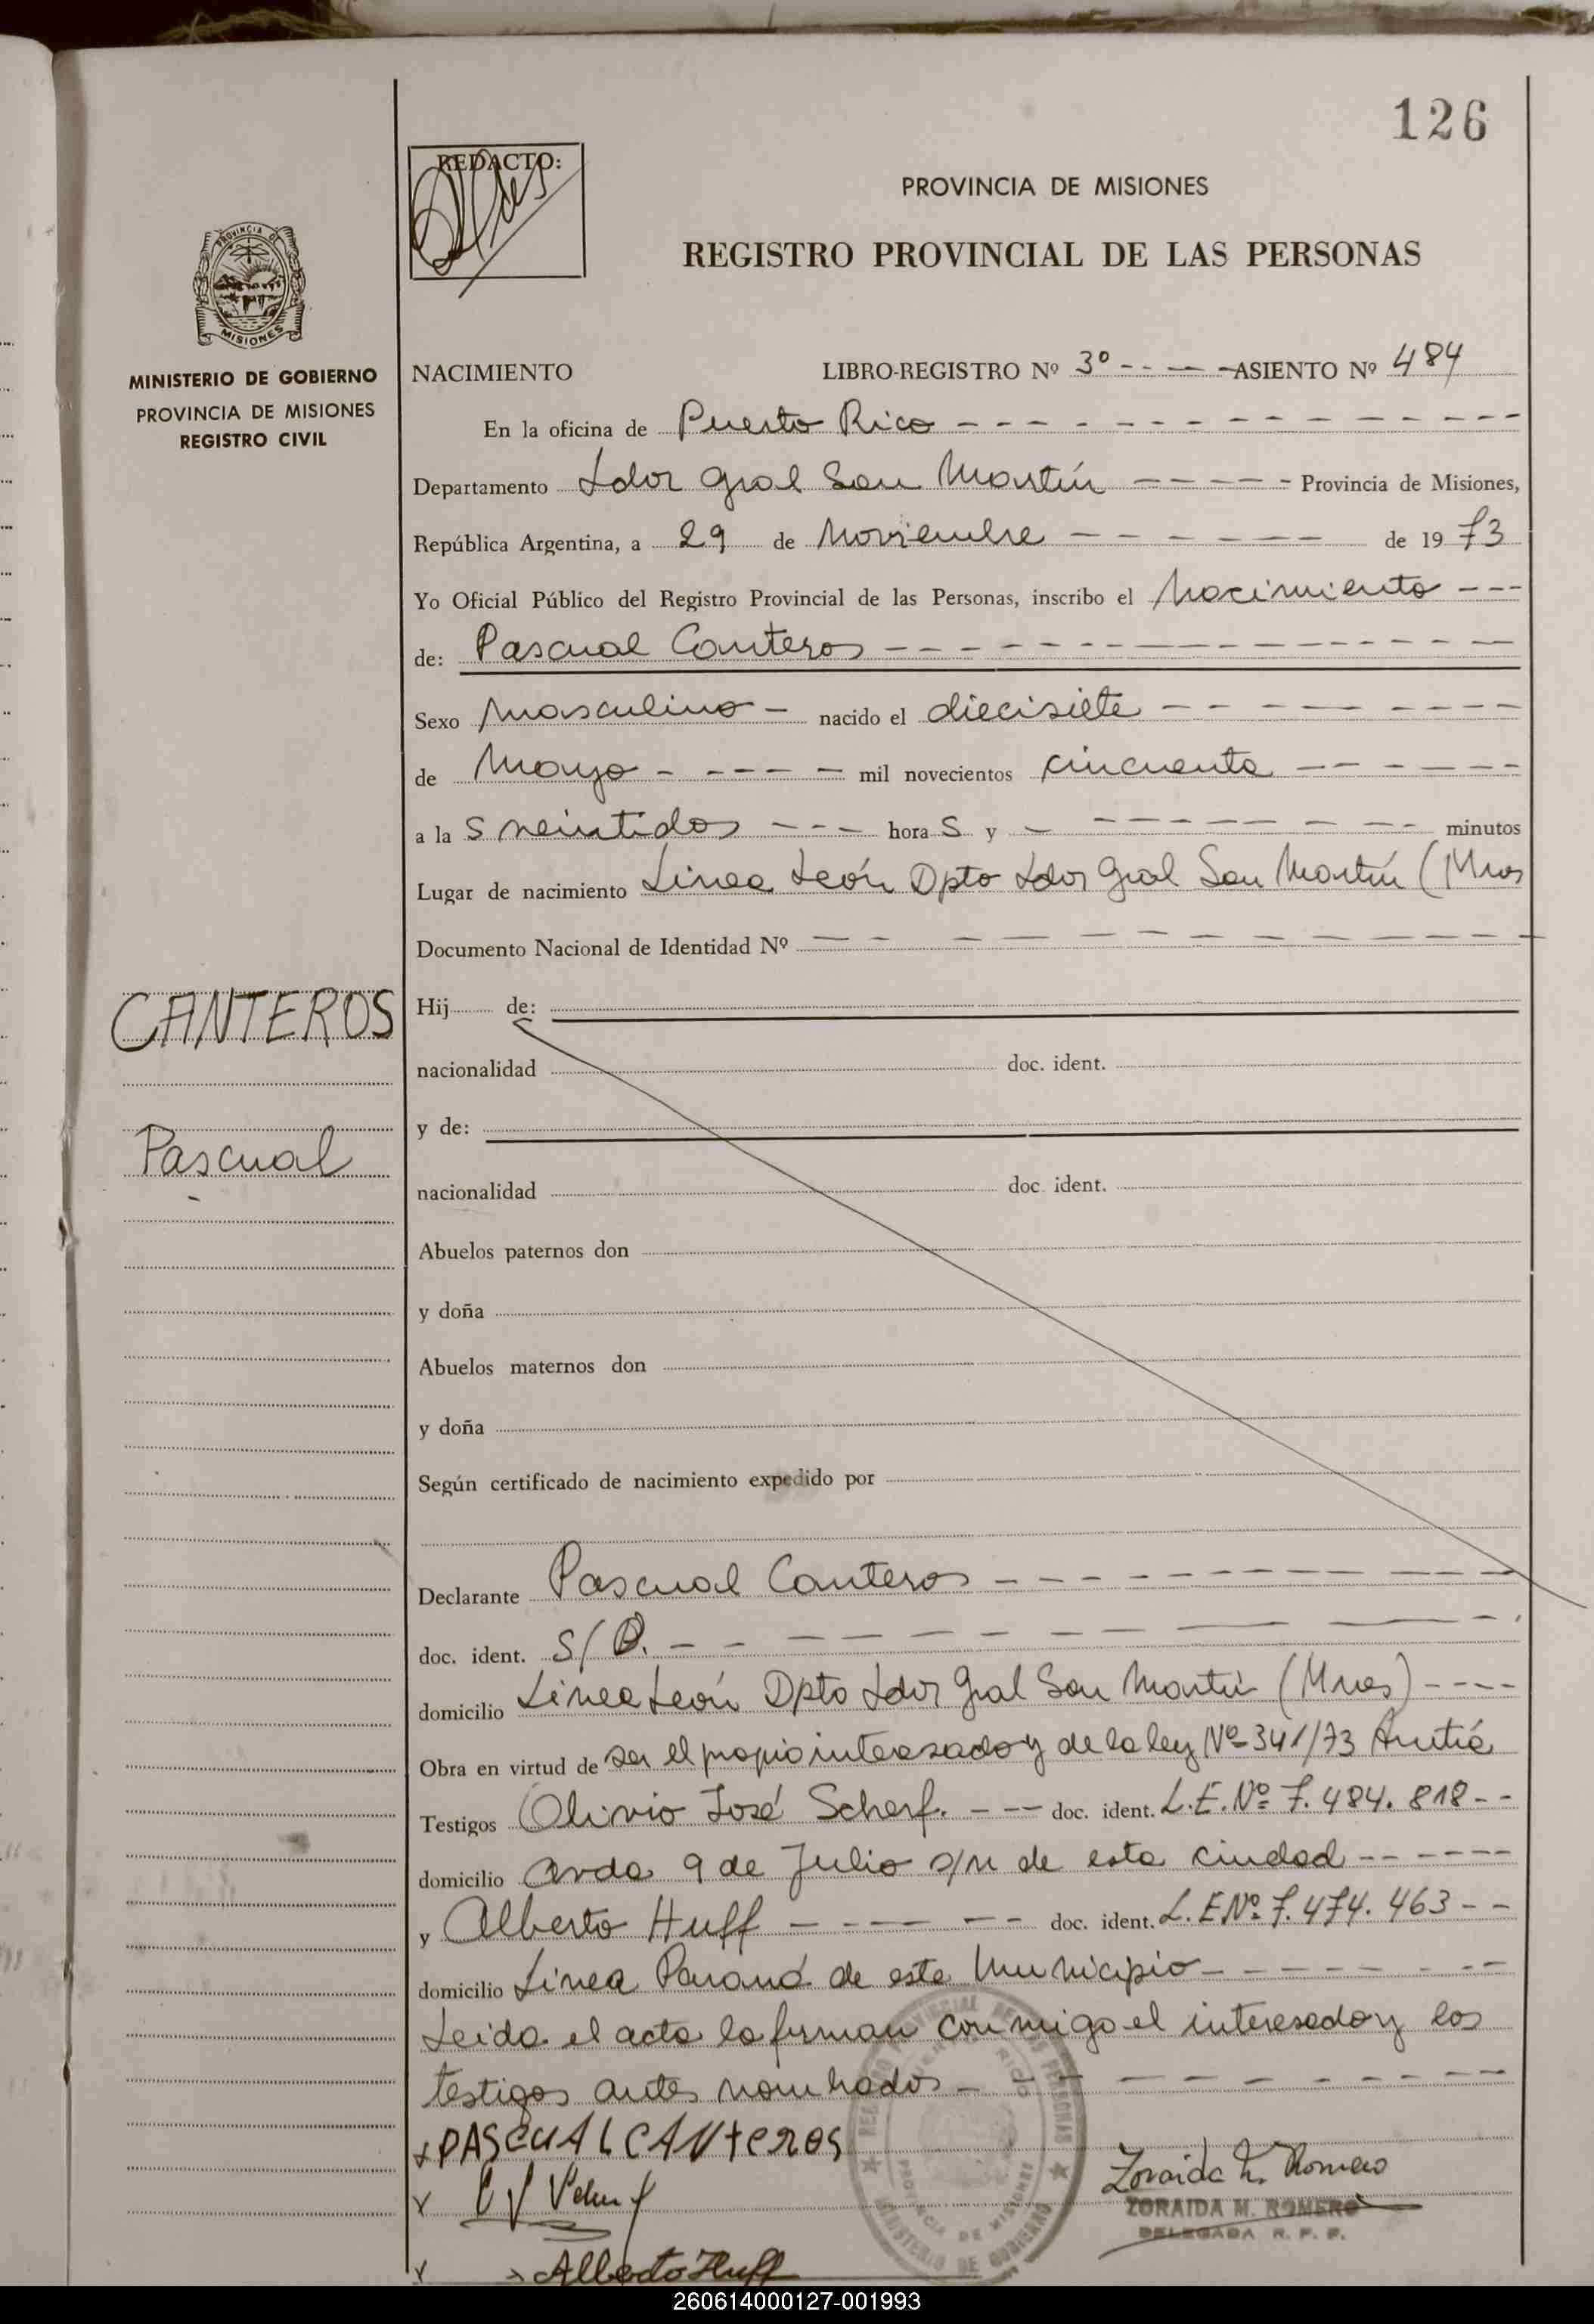 126
REDACTO:
PROVINCIA DE MISIONES
REGISTRO PROVINCIAL DE LAS PERSONAS
PROVINCIA DE
MISIONES
MINISTERIO DE GOBIERNO
PROVINCIA DE MISIONES
REGISTRO CIVIL
NACIMIENTO LIBRO-REGISTRO Nº 3º - - - - - ASIENTO Nº 484
En la oficina de Puerto Rico - - - - - - - - - - - - -
Departamento Ldor Gral San Martín - - - - - Provincia de Misiones,
República Argentina, a 29 de Noviembre - - - - - - - de 19 73
Yo Oficial Público del Registro Provincial de las Personas, inscribo el Nacimiento - - -
de: Pascual Canteros - - - - - - - - - - - - - - -
Sexo Masculino - nacido el diecisiete - - - - - - - -
de Mayo - - - - - - mil novecientos cincuenta - - - - - -
a la s veintidos - - - hora s y - - - - - - - - - minutos
Lugar de nacimiento Linea León Dpto Ldor Gral San Martín (Mnes
Documento Nacional de Identidad Nº - - - - - - - - - - - -
CANTEROS
Pascual
Hij de:
nacionalidad doc. ident.
y de:
nacionalidad doc. ident.
Abuelos paternos don
y doña
Abuelos maternos don
y doña
Según certificado de nacimiento expedido por
Declarante Pascual Canteros - - - - - - - - - - - -
doc. ident. S/D. - - - - - - - - - - -
domicilio Linea León Dpto Ldor Gral San Martín (Mnes) - - - -
Obra en virtud de ser el propio interesado y de la ley Nº 341/73
Testigos Olivio José Scherf. - - - doc. ident. L.E. Nº 7.484.818 - -
domicilio Avda 9 de Julio s/n de esta ciudad - - - - - -
y Alberto Huff - - - - - - - doc. ident. L.E Nº 7.474.463 - -
domicilio Linea Paraná de este Municipio - - - - - - - -
Leida el acta la firman conmigo el interesado y los
testigos antes nombrados - - - - - - - - - -
x PASCUAL CANteROS
Zoraida M. Romero
ZORAIDA M. ROMERO
DELEGADA R. P. P.
x Alberto Huff
REGISTRO PROVINCIAL DE LAS PERSONAS
PUERTO RICO
PROVINCIA DE MISIONES
MINISTERIO DE GOBIERNO
260614000127-001993